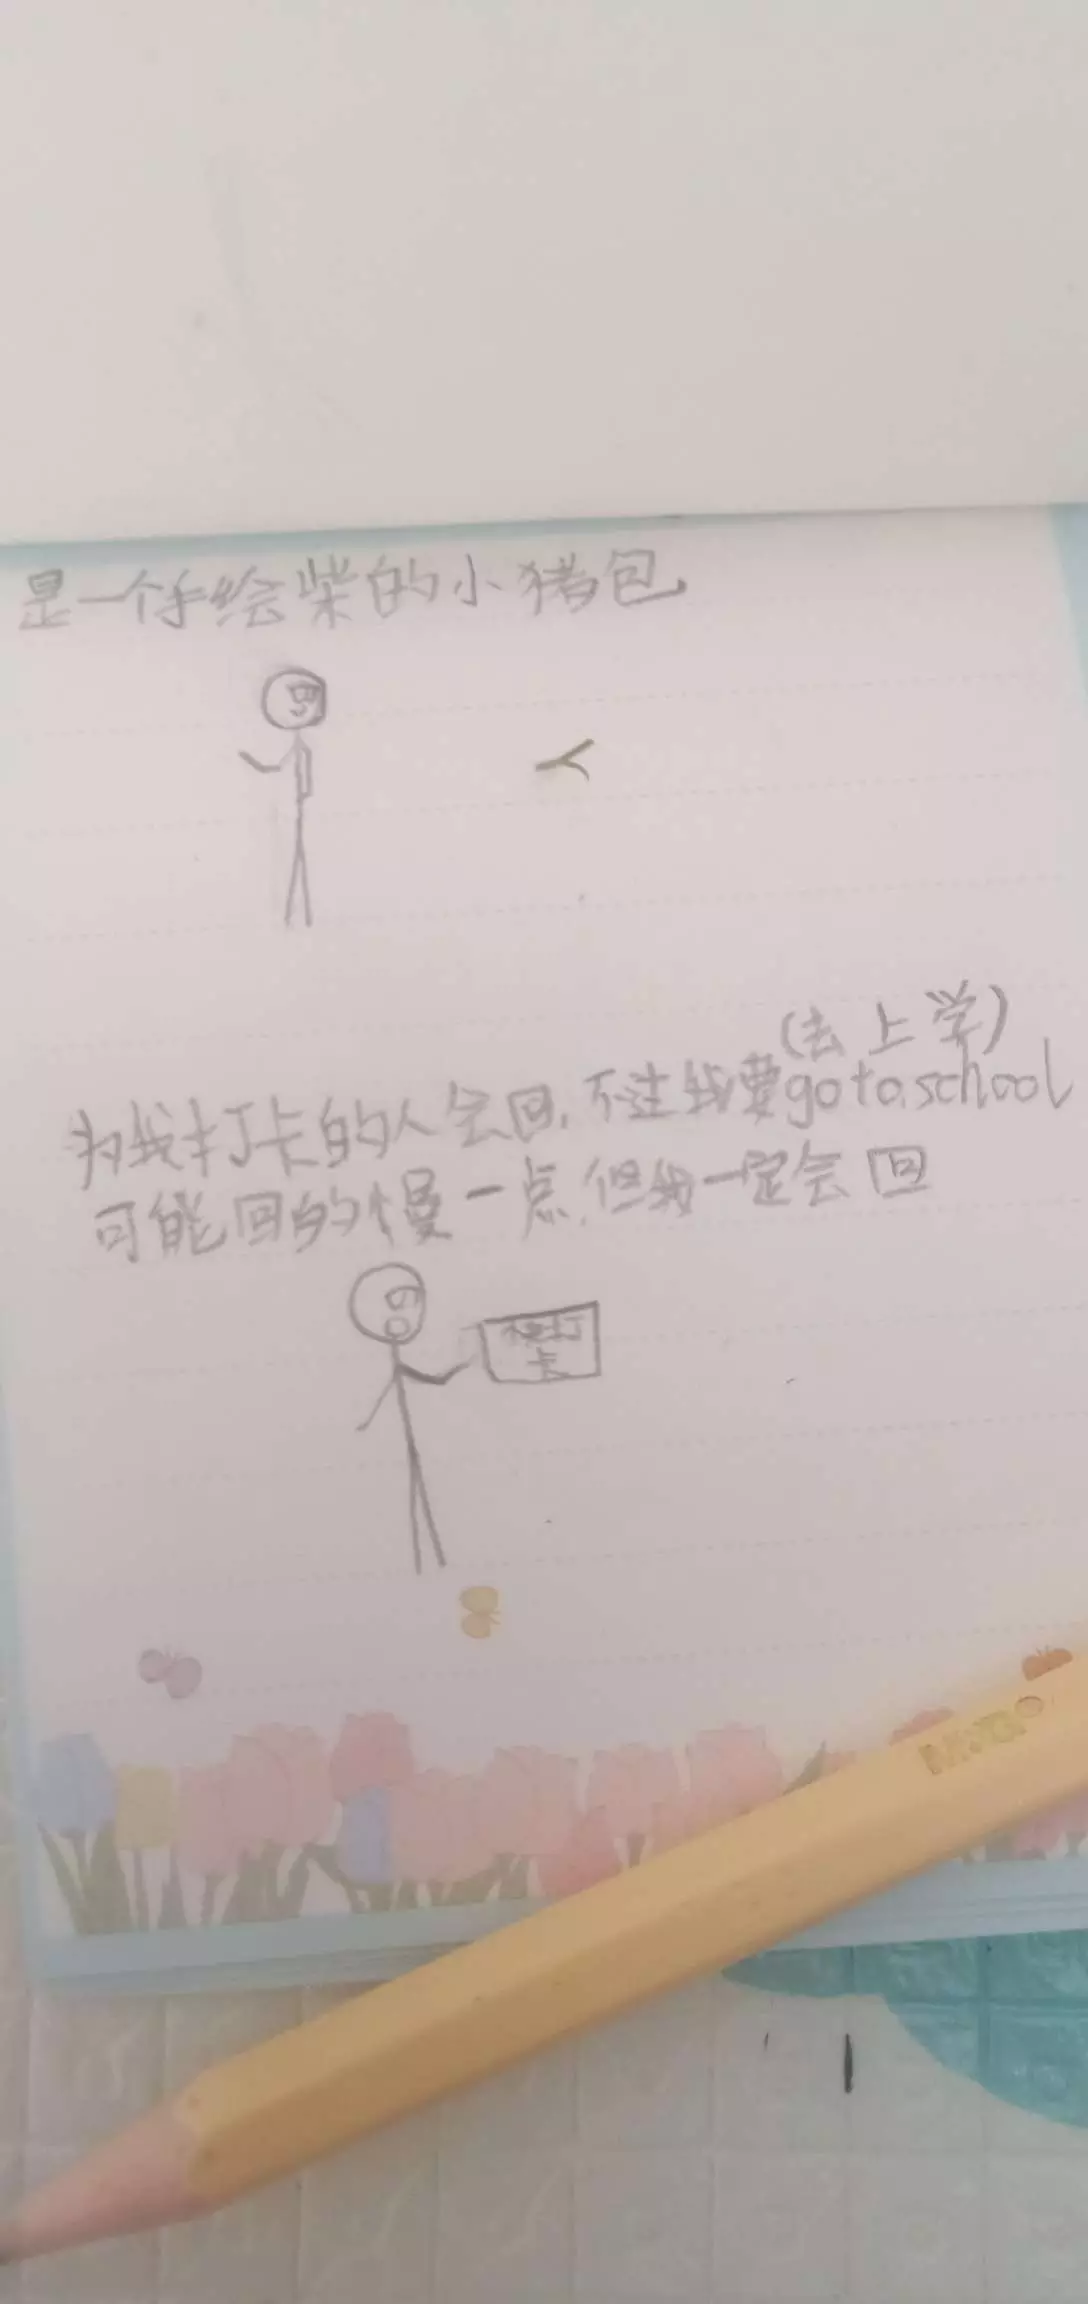 是一个手绘柴的小猪包
(去上学)
为我打卡的人会回,不过我要go to school
可能回的慢一点,但我一定会回
打
卡